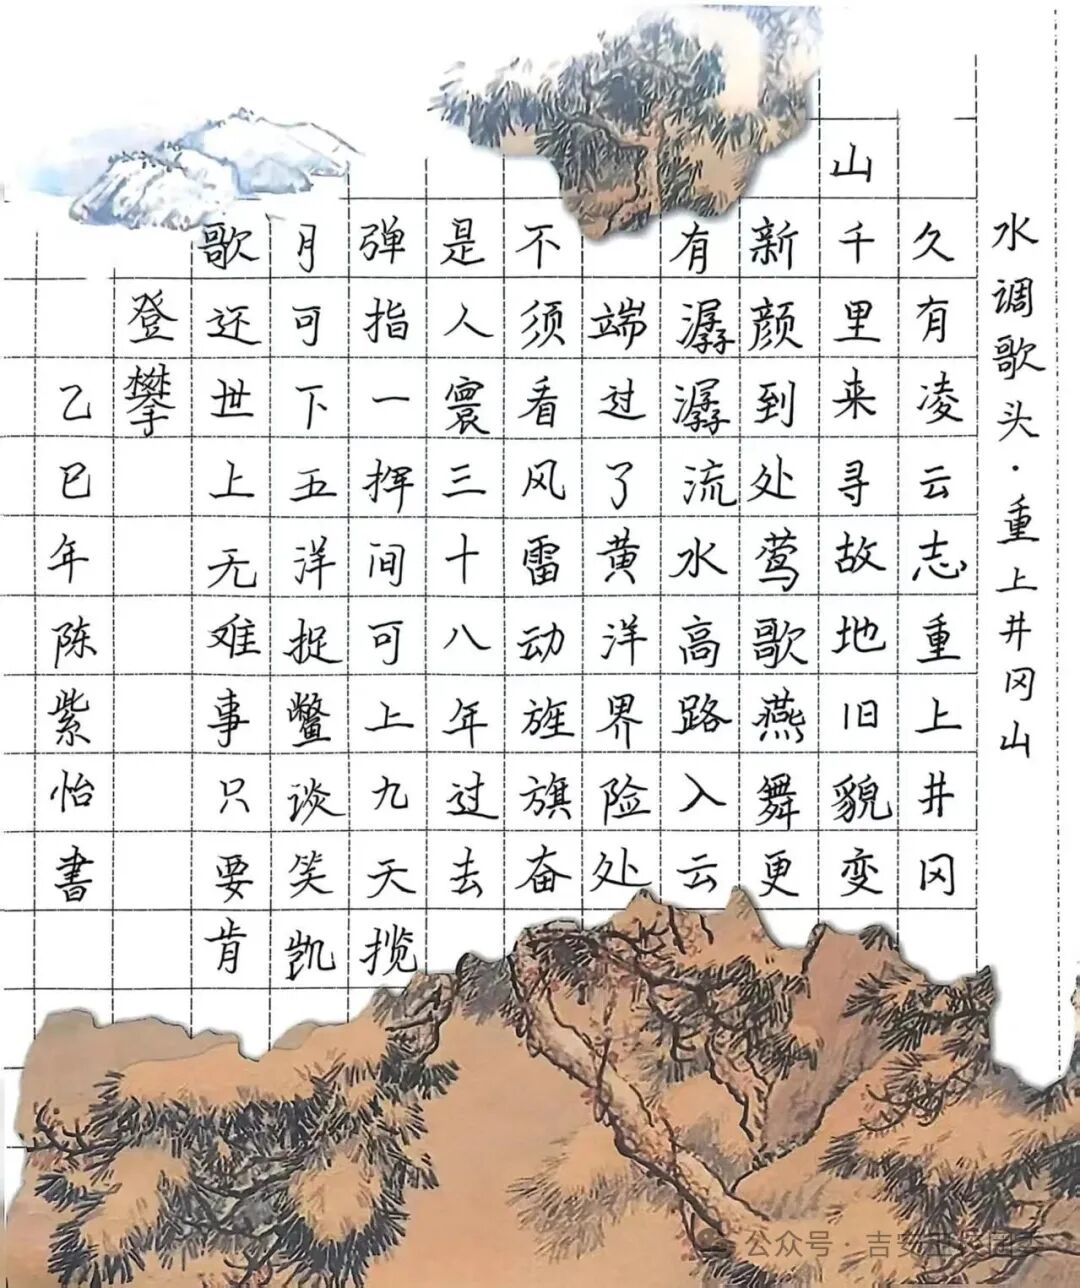 水调歌头·重上井冈山
久有凌云志重上井冈
山千里来寻故地旧貌变
新颜到处莺歌燕舞更
有潺潺流水高路入云
端过了黄洋界险处
不须看风雷动旌旗奋
是人寰三十八年过去
弹指一挥间可上九天揽
月可下五洋捉鳖谈笑凯
歌还世上无难事只要肯
登攀
乙巳年陈紫怡書
公众号·吉安